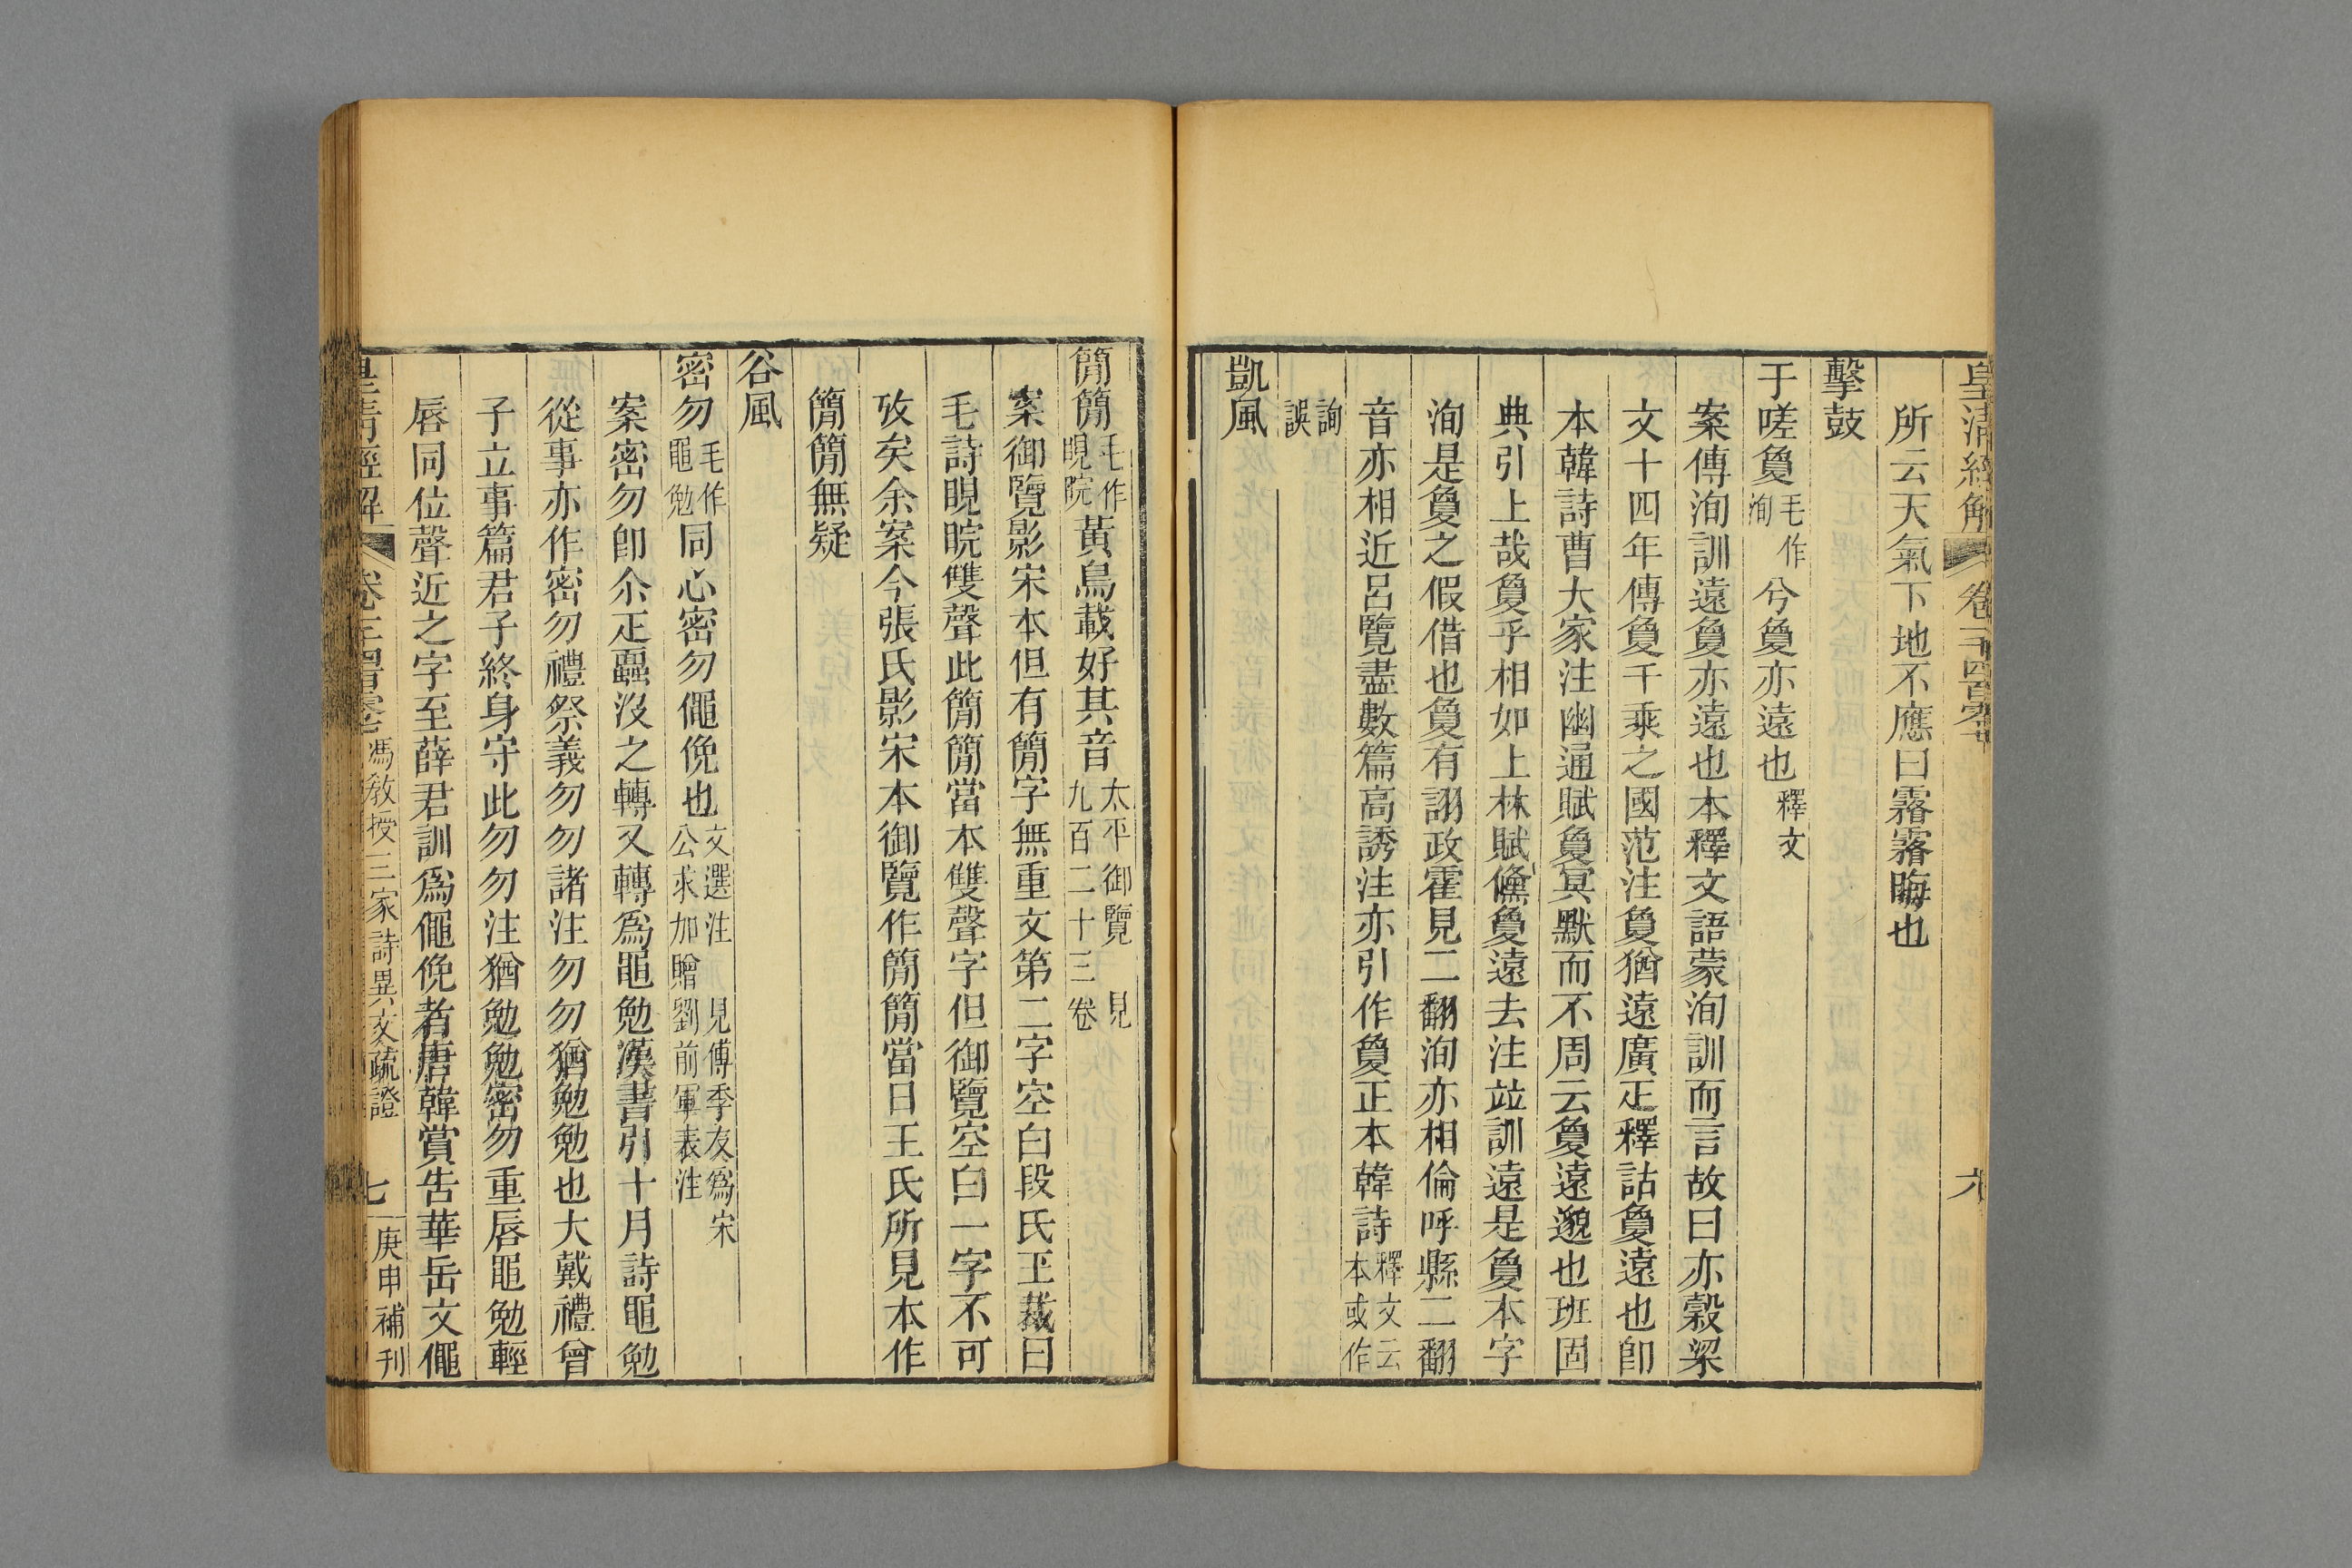 皇清經解 卷一千四百零七 六
所云天氣下地不應曰霿霿晦也
擊鼓
于嗟敻毛作洵兮敻亦遠也釋文
案傳洵訓遠敻亦遠也本釋文語蒙洵訓而言故曰亦穀梁
文十四年傳敻千乘之國范注敻猶遠廣疋釋詁敻遠也卽
本韓詩曹大家注幽通賦敻冥默而不周云敻遠邈也班固
典引上哉敻乎相如上林賦儵敻遠去注竝訓遠是敻本字
洵是敻之假借也敻有詗政霍見二翻洵亦相倫呼縣二翻
音亦相近呂覽盡數篇高誘注亦引作敻正本韓詩釋文云本或作
詢誤
凱風
簡簡毛作睍睆黃鳥載好其音太平御覽九百二十三卷見
案御覽影宋本但有簡字無重文第二字空白段氏玉裁曰
毛詩睍睆雙聲此簡簡當本雙聲字但御覽空白一字不可
攷矣余案今張氏影宋本御覽作簡簡當日王氏所見本作
簡簡無疑
谷風
密勿毛作黽勉同心密勿僶俛也文選注見傅季友爲宋公求加贈劉前軍表注
案密勿卽尒疋蠠沒之轉又轉爲黽勉漢書引十月詩黽勉
從事亦作密勿禮祭義勿勿諸注勿勿猶勉勉也大戴禮曾
子立事篇君子終身守此勿勿注猶勉勉密勿重唇黽勉輕
唇同位聲近之字至薛君訓爲僶俛者唐韓賞告華岳文僶
皇清經解 卷一千四百零七 馮敎授三家詩異文疏證 七 庚申補刊